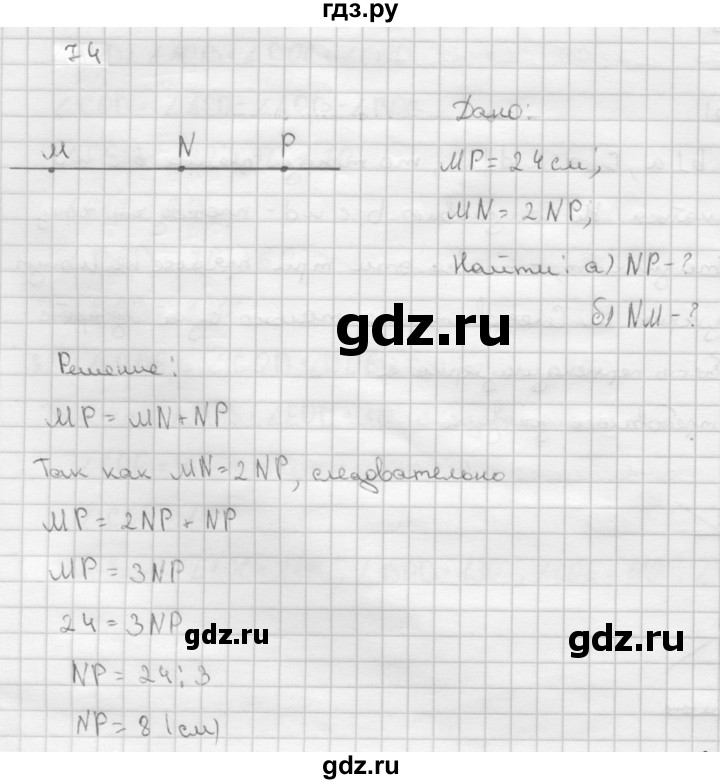 гдз.ру
74
Дано:
M N P
MP = 24 см;
MN = 2 NP,
Найти: а) NP - ?
б) NM - ?
gdz.ru
Решение:
MP = MN + NP
Так как MN = 2 NP, следовательно
MP = 2NP + NP
MP = 3NP
24 = 3NP
gdz.ru
gdz.ru
NP = 24 : 3
NP = 8 (см)
gdz.ru